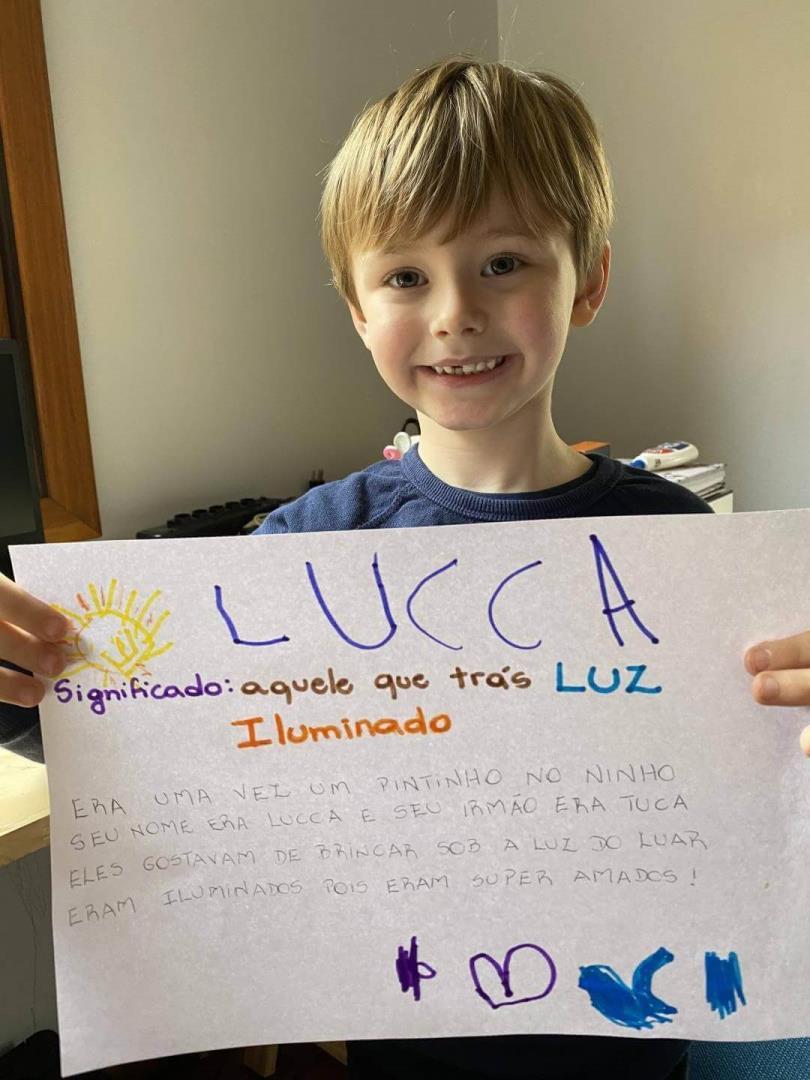 LUCCA
Significado: aquele que trás LUZ
Iluminado
ERA UMA VEZ UM PINTINHO NO NINHO
SEU NOME ERA LUCCA E SEU IRMÃO ERA TUCA
ELES GOSTAVAM DE BRINCAR SOB A LUZ DO LUAR
ERAM ILUMINADOS POIS ERAM SUPER AMADOS!